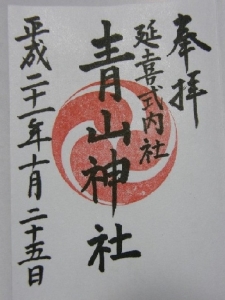 奉拝
延喜式内社
青山神社
平成二十一年十月二十五日